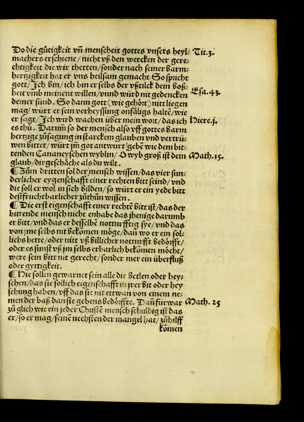 Do die gütigkeit vñ menscheit gottes vnsers heyl Tit:3.
machers erschiene/ nicht vß den wercken der gere-
chtigkeit die wir thetten/sonder nach seiner Barm
hertzigkeit hat er vns heilsam gemacht. So spricht
gott/Ich bin/ich bin er selbs der vßtilck dein boß-
heit vmb meinent willen/vnnd würd nit gedencken Esa. 43.
deiner sünd. So dann gott (wie gehört) nitt liegen
mag/würt er sein verheyssung onsälligs halte/wie
er sage/Ich würd wachen über mein wort/das ich Hiere.1.
es thů. Darum so der mensch also vff gottes Barm
hertzige zůsagung in starckem glauben vnd vertru
wen bittet/würt jm got antwurt gebe wie dem bit-
tenden Cananeyschen wyblin/ O wyb groß ist dein Math.15.
glaub/dir geschähe als du wilt.
¶ Zům dritten sol der mensch wissen/das vier sun-
derlicher eygenschafft einer rechten bitt seind/vnd
die soll er wol in sich bilden/so würt er ein yede bitt
deß fruchtbarlicher zůthůn wissen.
¶ Die erst eigenschafft einer rechte bitt ist/das der
bittende mensch nicht enhabe das jhenige darumb
er bitt/vnd das er desselbe notturfftig sye/vnd das
von jme selbs nit bekōmen möge/dañ wo er ein sol-
lichs hette/oder nitt vß billicher notturfft bedörfft/
oder es sunst vß jm selbs erbarlich bekōmen möcht/
were sein bitt nit gerecht/sonder mer ein überfluß
oder gyttigkeit.
¶ Die sollen gewarnet sein alle die Betlen oder hey
schen/das sie sollich eigenschafft in jrer bit oder hey
schung haben/vff das sie nit ettwan von einem ne-
men der baß dan sie gebens bedörffte. Dañ fürwar Math. 25
zů glich wie ein jeder Christē mensch schuldig ist das
er/so er mag/seinē nechsten der mangel hat/zůhilff
kōmen